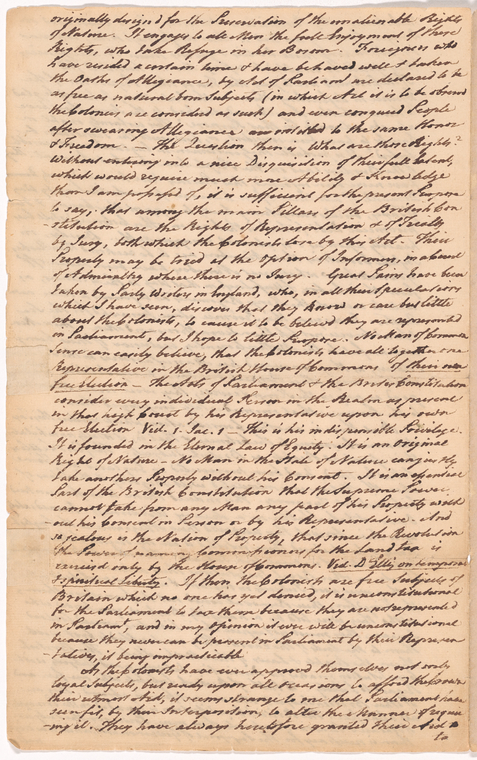 originally design'd for the Preservation of the unalienable Rights
of Nature. It engages to all Men the full Enjoyment of these
Rights, who take Refuge in her Bosom. Foreigners who
have resided a certain time & have behaved well & taken
the Oaths of Allegiance, by Act of Parliamt are declared to be
as free as natural born Subjects (in which Act it is to be observd
the Colonies are considered as such) and even conquered People
after swearing Allegiance are entitled to the same Honor
& Freedom. — The Question then is What are those Rights?
Without entering into a nice Disquisition of their full Extent,
which would require much more Ability & Knowledge
than I am possessed of, it is sufficient for the present Purpose
to say, that among the main Pillars of the British Con
stitution are the Rights of Representation & of Tryalls
by Jury, both which the Colonists lose by this Act. Their
Property may be tried at the Option of Informers, in a Court
of Admiralty where there is no Jury. Great Pains have been
taken by Party Writers in England, who, in all their Speculations
which I have seen, discover that they know or care but little
about the Colonists, to cause it to be believed they are represented
in Parliament, but I hope to little Purpose. No Man of Common
Sense can easily believe, that the Colonists have all together one
Representative in the British House of Commons of their own
free Election — The Acts of Parliament & the British Constitution
consider every individual Person in the Realm as present
in that high Court by his Representative upon his own
free Election Vid. 1. Jac. 1 — This is his indisponsible Priviledge.
It is founded in the Eternal Law of Equity. It is an Original
Right of Nature — No Man in the State of Nature can justly
take anothers Property without his Consent. It is an essential
Part of the British Constitution that the Supreme Power
cannot take from any Man any part of his Property with
out his Consent in Person or by his Representative. And
so zealous is the Nation of Property, that since the Revolution
the Power of naming Commissioners for the Land tax is
exercised only by the House of Commons. Vid. Dr Ellis on temporal
& spiritual Liberty. If then the Colonists are free Subjects of
Britain which no one has yet denied, it is unconstitutional
for the Parliament to tax them because they are not represented
in Parliamt, and in my opinion it ever will be unconstitutional
because they never can be present in Parliament by their Represen
tatives, it being impracticable
As the Colonists have ever approved themselves not only
loyal Subjects, but ready upon all occasions to afford the Crown
their utmost Aid, it seems strange to me that Parliament have
seen fit, by their Interposition, to alter the Manner of requir
ing it. They have always heretofore granted their Aid
to